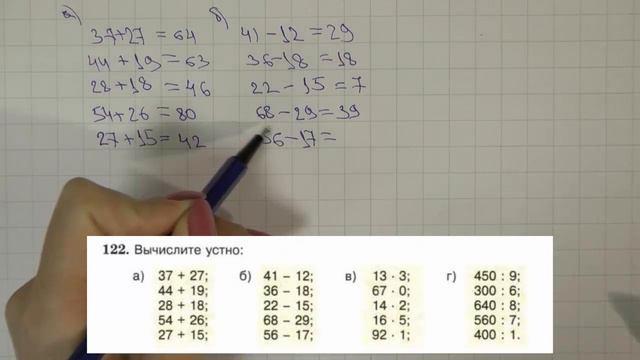 а) б)
37+27=64 41-12=29
44+19=63 36-18=18
28+18=46 22-15=7
54+26=80 68-29=39
27+15=42 56-17=
122. Вычислите устно:
а) 37 + 27; б) 41 – 12; в) 13 · 3; г) 450 : 9;
44 + 19; 36 – 18; 67 · 0; 300 : 6;
28 + 18; 22 – 15; 14 · 2; 640 : 8;
54 + 26; 68 – 29; 16 · 5; 560 : 7;
27 + 15; 56 – 17; 92 · 1; 400 : 1.